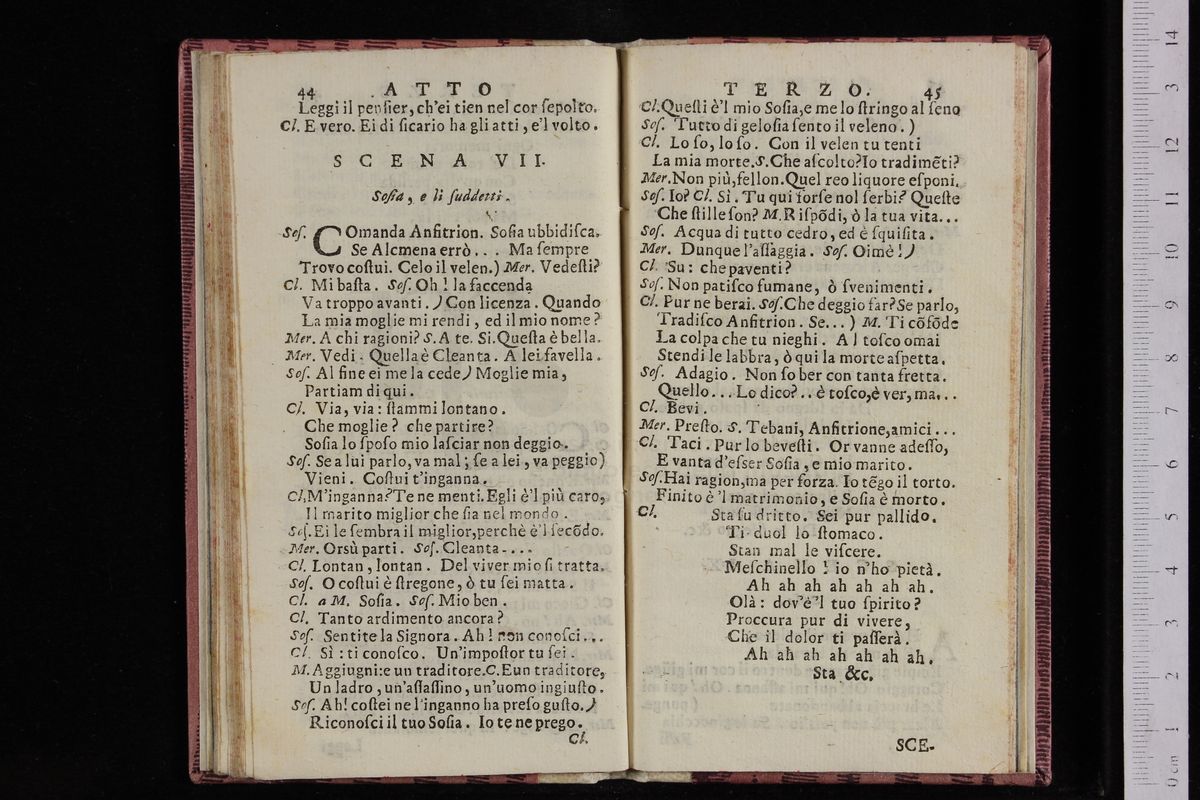 44 ATTO
Leggi il pensier, ch'ei tien nel cor ſepolto.
Cl. E vero. Ei di ſicario ha gli atti, e'l volto.
SCENA VII.
Soſia, e li ſuddetti.
Soſ. COmanda Anfitrion. Soſia ubbidiſca.
Se Alcmena errò... Ma ſempre
Trovo coſtui. Celo il velen.) Mer. Vedeſti?
Cl. Mi baſta. Soſ. Oh! la faccenda
Va troppo avanti.) Con licenza. Quando
La mia moglie mi rendi, ed il mio nome?
Mer. A chi ragioni? S. A te. Si. Queſta è bella.
Mer. Vedi. Quella è Cleanta. A lei favella.
Soſ. Al fine ei me la cede) Moglie mia,
Partiam di qui.
Cl. Via, via: ſtammi lontano.
Che moglie? che partire?
Soſia lo ſpoſo mio laſciar non deggio.
Soſ. Se a lui parlo, va mal; ſe a lei, va peggio)
Vieni. Coſtui t'inganna.
Cl. M'inganna? Te ne menti. Egli è'l più caro,
Il marito miglior che ſia nel mondo.
Soſ. Ei le ſembra il miglior, perchè è'l ſecōdo.
Mer. Orsù parti. Soſ. Cleanta....
Cl. Lontan, lontan. Del viver mio ſi tratta.
Soſ. O coſtui è ſtregone, ò tu ſei matta.
Cl. a M. Soſia. Soſ. Mio ben.
Cl. Tanto ardimento ancora?
Soſ. Sentite la Signora. Ah! non conoſci...
Cl. Sì: ti conoſco. Un'impoſtor tu ſei.
M. Aggiugni: e un traditore. C. E un traditore,
Un ladro, un'aſſaſſino, un'uomo ingiuſto.
Soſ. Ah! coſtei ne l'inganno ha preſo guſto.)
Riconoſci il tuo Soſia. Io te ne prego.
Cl.
TERZO. 45
Cl. Queſti è'l mio Soſia, e me lo ſtringo al ſeno
Soſ. Tutto di geloſia ſento il veleno.)
Cl. Lo ſo, lo ſo. Con il velen tu tenti
La mia morte. S. Che aſcolto? Io tradimēti?
Mer. Non più, fellon. Quel reo liquore eſponi.
Soſ. Io? Cl. Sì. Tu qui forſe nol ſerbi? Queſte
Che ſtille ſon? M. Riſpōdi, ò la tua vita...
Soſ. Acqua di tutto cedro, ed è ſquiſita.
Mer. Dunque l'aſſaggia. Soſ. Oimè!)
Cl. Su: che paventi?
Soſ. Non patiſco fumane, ò ſvenimenti.
Cl. Pur ne berai. Soſ. Che deggio far? Se parlo,
Tradiſco Anfitrion. Se...) M. Ti cōfōde
La colpa che tu nieghi. Al toſco omai
Stendi le labbra, ò qui la morte aſpetta.
Soſ. Adagio. Non ſo ber con tanta fretta.
Quello... Lo dico?.. è toſco, è ver, ma...
Cl. Bevi.
Mer. Preſto. S. Tebani, Anfitrione, amici...
Cl. Taci. Pur lo beveſti. Or vanne adeſſo,
E vanta d'eſser Soſia, e mio marito.
Soſ. Hai ragion, ma per forza. Io tēgo il torto.
Finito è 'l matrimonio, e Soſia è morto.
Cl. Sta ſu dritto. Sei pur pallido.
Ti duol lo ſtomaco.
Stan mal le viſcere.
Meſchinello! io n'ho pietà.
Ah ah ah ah ah ah ah.
Olà: dov'è 'l tuo ſpirito?
Proccura pur di vivere,
Che il dolor ti paſſerà.
Ah ah ah ah ah ah ah.
Sta &c.
SCE-
0 cm 1 2 3 4 5 6 7 8 9 10 11 12 13 14